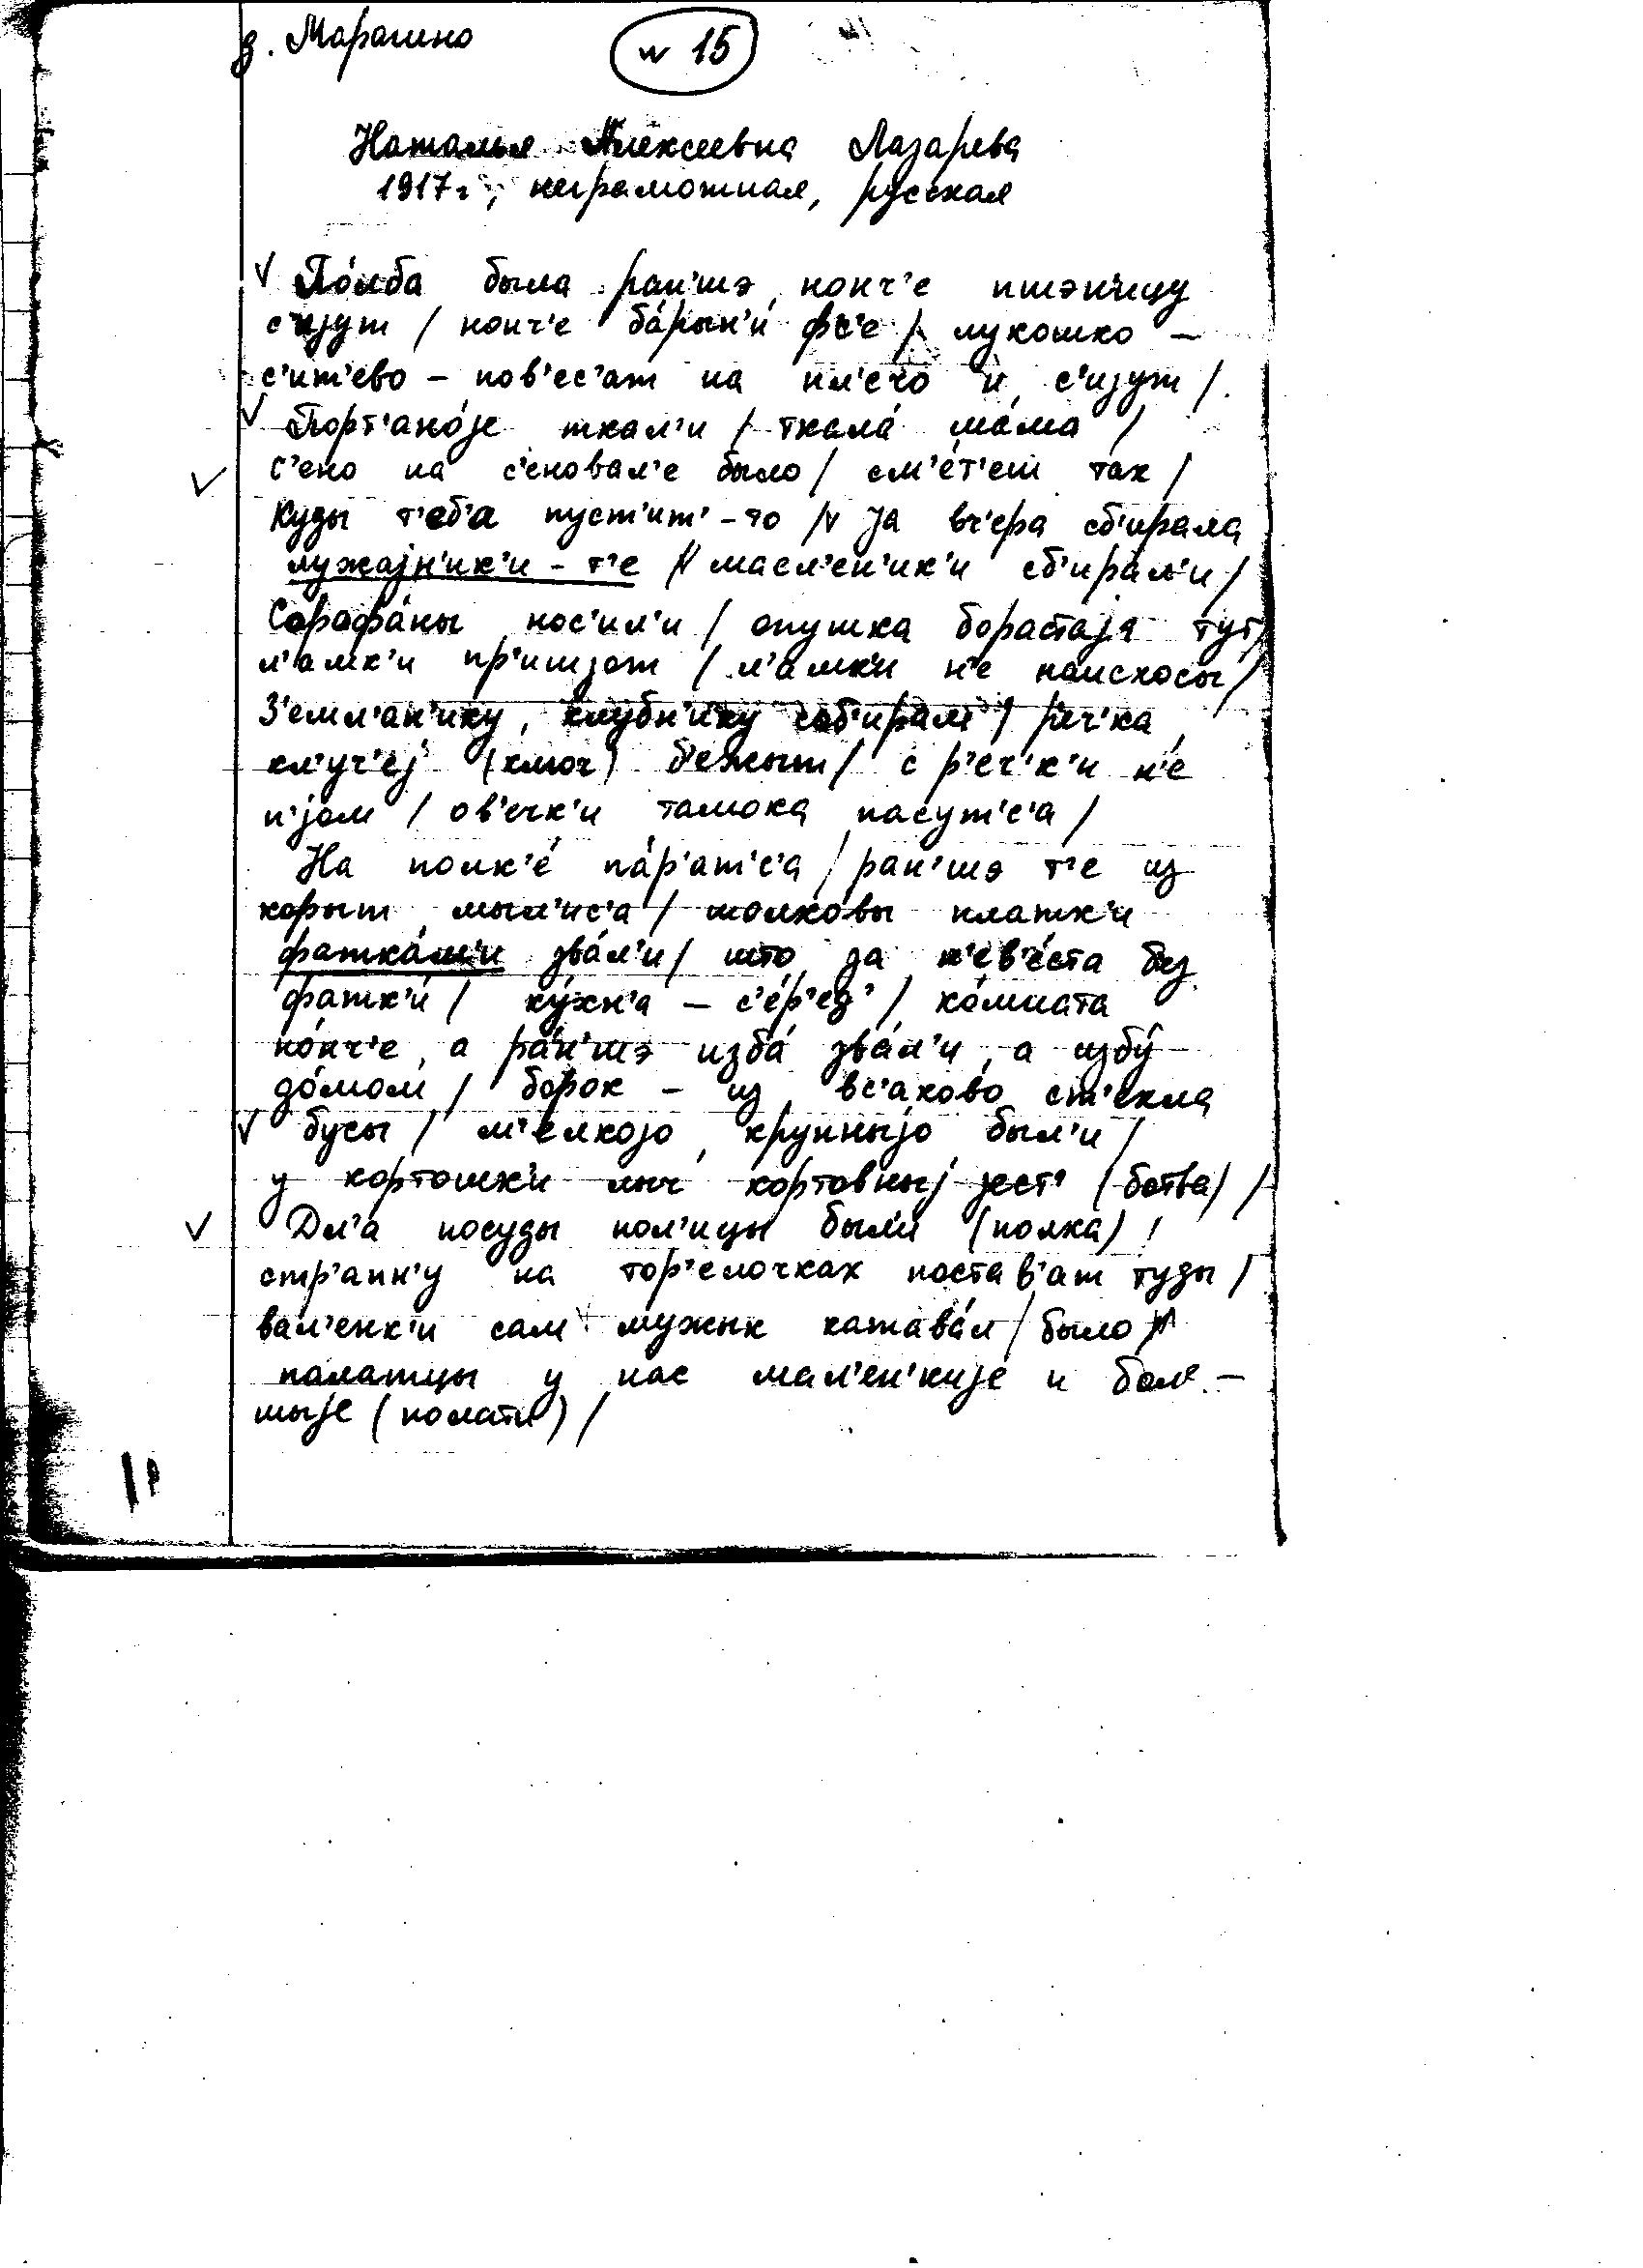 д. Марагино
N 15
Наталья Алексеевна Лазарева
1917 г., неграмотная, русская
По́лба была ран'шэ, нонч'е пшэницу
с'ијут / нонч'е ба́рын'и фс'е / лукошко –
с'ит'ево – пов'ес'ат на пл'еч'о и с'ијут /
Порт'ано́јe ткал'и / ткала́ ма́ма /
с'ено на с'еновал'е было / см'е́т'ет так /
Куды т'еб'а пуст'ит'-то // ја вч'ера сб'ирала
лужајн'ик'и – т'е // масл'ен'ик'и сб'ирал'и /
Сарафа́ны нос'ил'и / опушка борастаја тут /
л'амк'и пр'ишјот / л'амк'и н'е наискосы /
З'емл'ан'ику, клубн'ику соб'ирал'и / р'еч'ка
кл'уч'еј (ключ) б'ежыт / с р'еч'к'и н'е
п'јом / ов'ечк'и тамока пасут'с'а /
На полк'е́ па́р'ат'с'а / ран'шэ т'е из
корыт мыл'ис'а / шолко́вы платк'и
фатка́м'и зва́л'и / што за н'ев'е́ста без
фатк'и́ / ку́хн'а – с'е́р'ед' / ко́мната
но́нч'е, а ра́н'шэ изба́ зва́л'и, а избу́
до́мом / борок – из вс'аково ст'екла
бусы / м'елкојо, крупныјо был'и /
у кортошк'и лыч кортовныј јест' (ботва) /
Дл'а посуды пол'ицы были (полка) /
стр'апн'у на тор'елочках постав'ат туды /
вал'енк'и сам мужык катава́л / было //
палатцы у нас мал'ен'кије и бол'-
шыје (полати) /